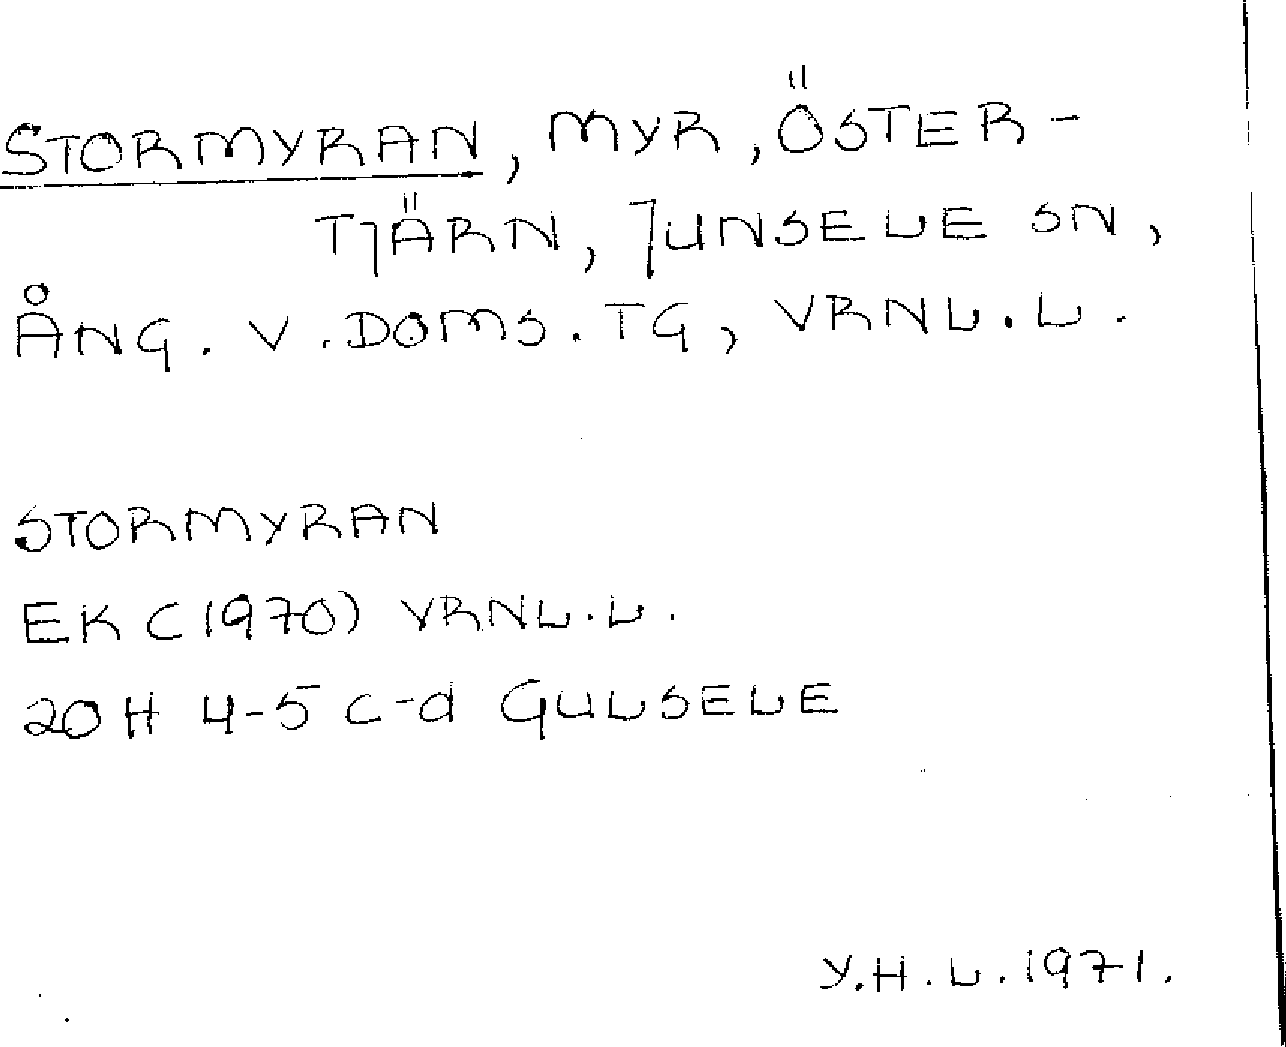 STORMYRAN, MYR, ÖSTER-
TJÄRN, JUNSELE SN,
ÅNG. V. DOMS. TG, VRNL. L.
STORMYRAN
EK (1970) VRNL. L.
20 H 4-5 c-d GULSELE
Y. H. L. 1971.